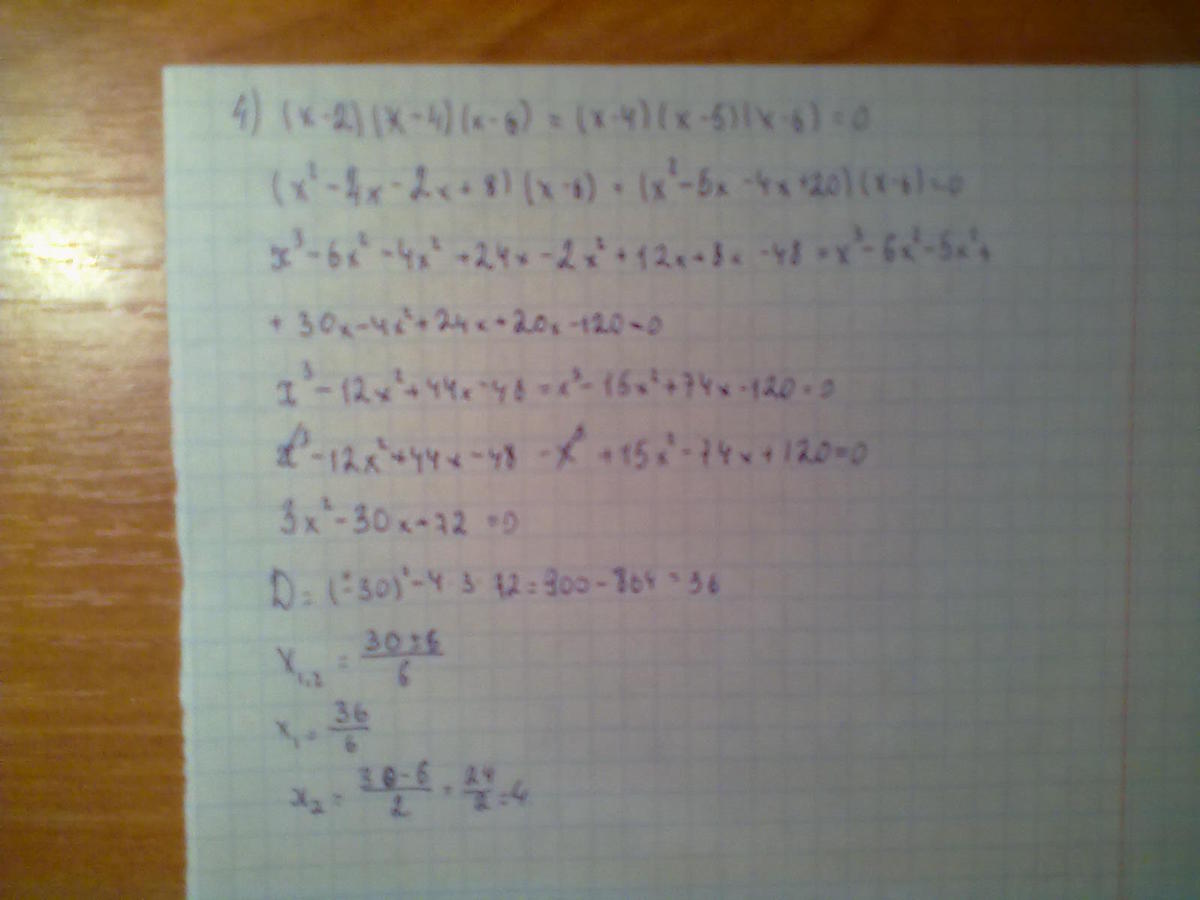 4) (x-2)(x-4)(x-6) = (x-4)(x-5)(x-6) = 0
(x²-4x-2x+8)(x-6) = (x²-5x-4x+20)(x-6)=0
x³-6x²-4x²+24x-2x²+12x+8x-48=x³-6x²-5x²+
+30x-4x²+24x+20x-120=0
x³-12x²+44x-48=x³-15x²+74x-120=0
x³-12x²+44x-48-x³+15x²-74x+120=0
3x²-30x+72=0
D=(-30)²-4·3·72=900-864=36
x₁,₂ = (30±6)/6
x₁ = 36/6
x₂ = (30-6)/2 = 24/2 = 4